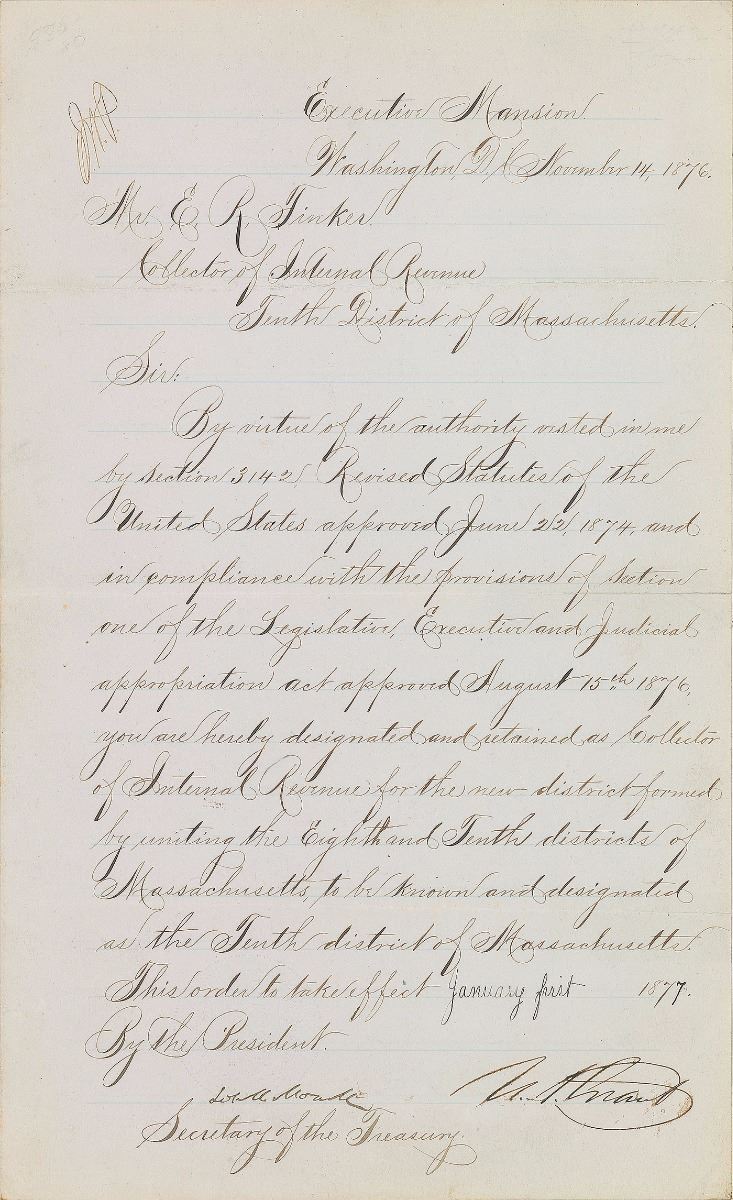 Executive Mansion
Washington, D.C. November 14, 1876.
Mr. E. R. Tinker.
Collector of Internal Revenue
Tenth District of Massachusetts.
Sir:
By virtue of the authority vested in me
by section 3142 Revised Statutes of the
United States approved June 22, 1874, and
in compliance with the provisions of section
one of the Legislative, Executive and Judicial
appropriation act approved August 15th 1876,
you are hereby designated and retained as Collector
of Internal Revenue for the new district formed
by uniting the Eighth and Tenth districts of
Massachusetts, to be known and designated
as the Tenth district of Massachusetts.
This order to take effect january first 1877.
By the President.
U. S. Grant
Lot M. Morrill
Secretary of the Treasury.